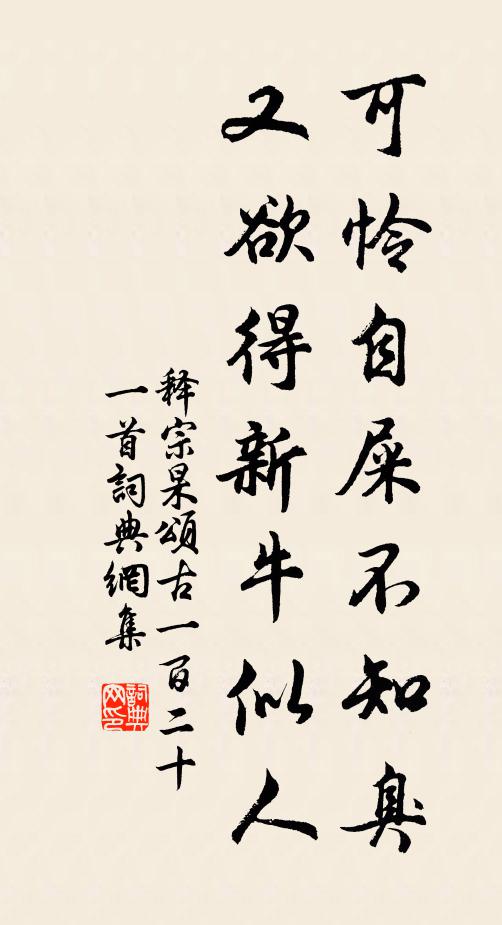 可怜自屎不知臭
又欲得新牛似人
释宗杲頌古一百二十
一首詞典網集
詞典网印